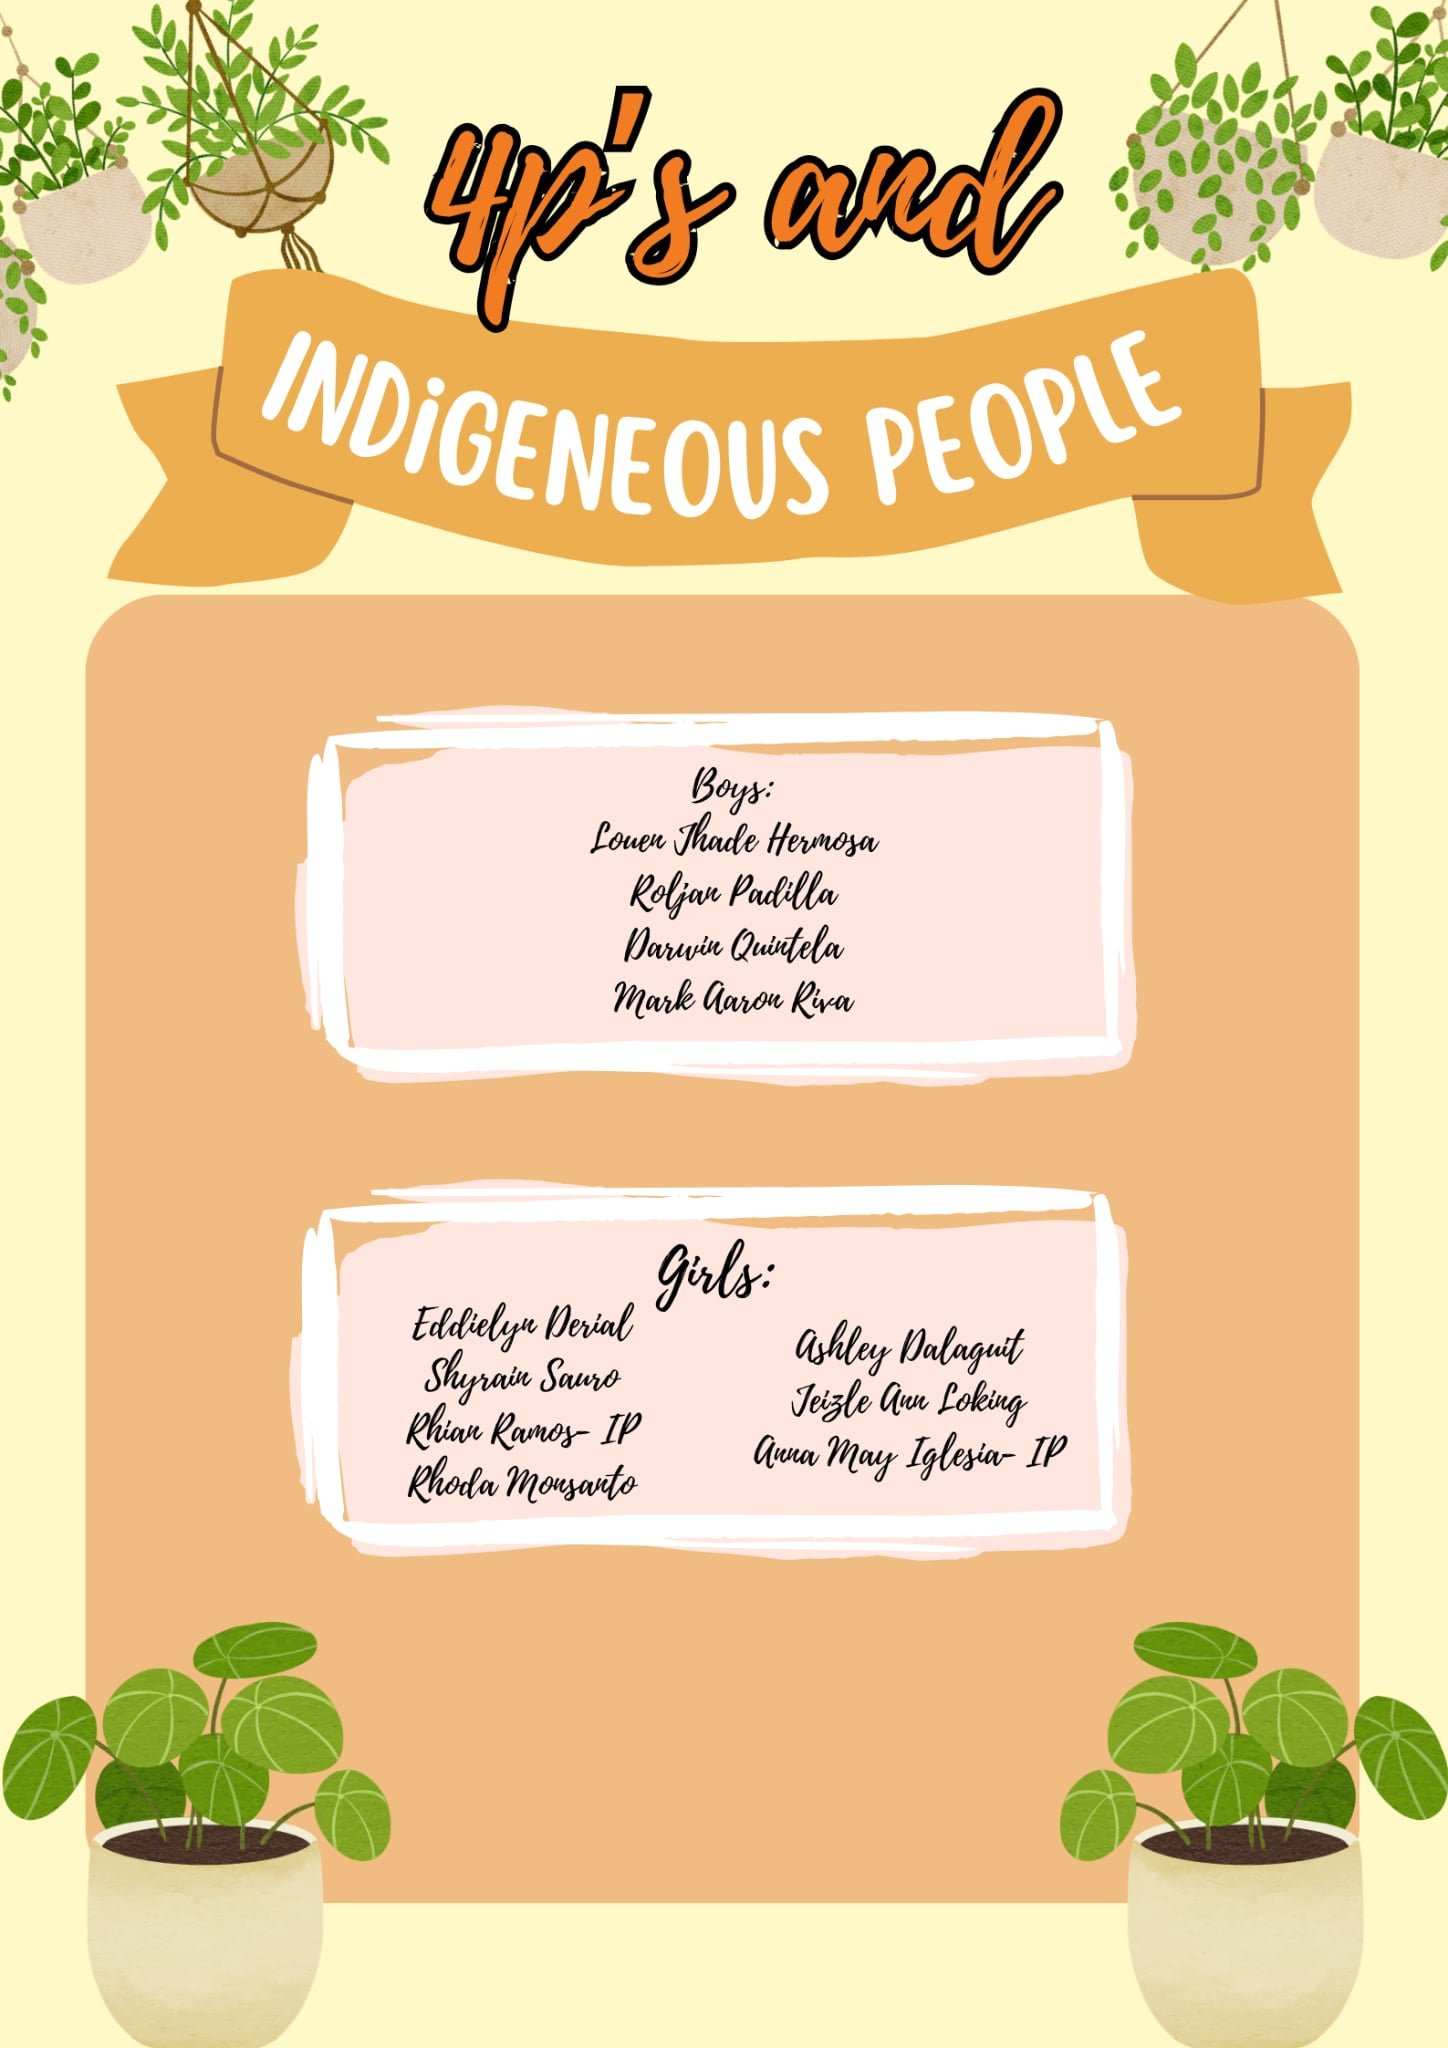 4p's and
INDiGENEOUS PEOPLE
Boys:
Louen Jhade Hermosa
Roljan Padilla
Darwin Quintela
Mark Aaron Riva
Girls:
Eddielyn Derial
Shyrain Sauro
Rhian Ramos- IP
Rhoda Monsanto
Ashley Dalaguit
Jeizle Ann Loking
Anna May Iglesia- IP